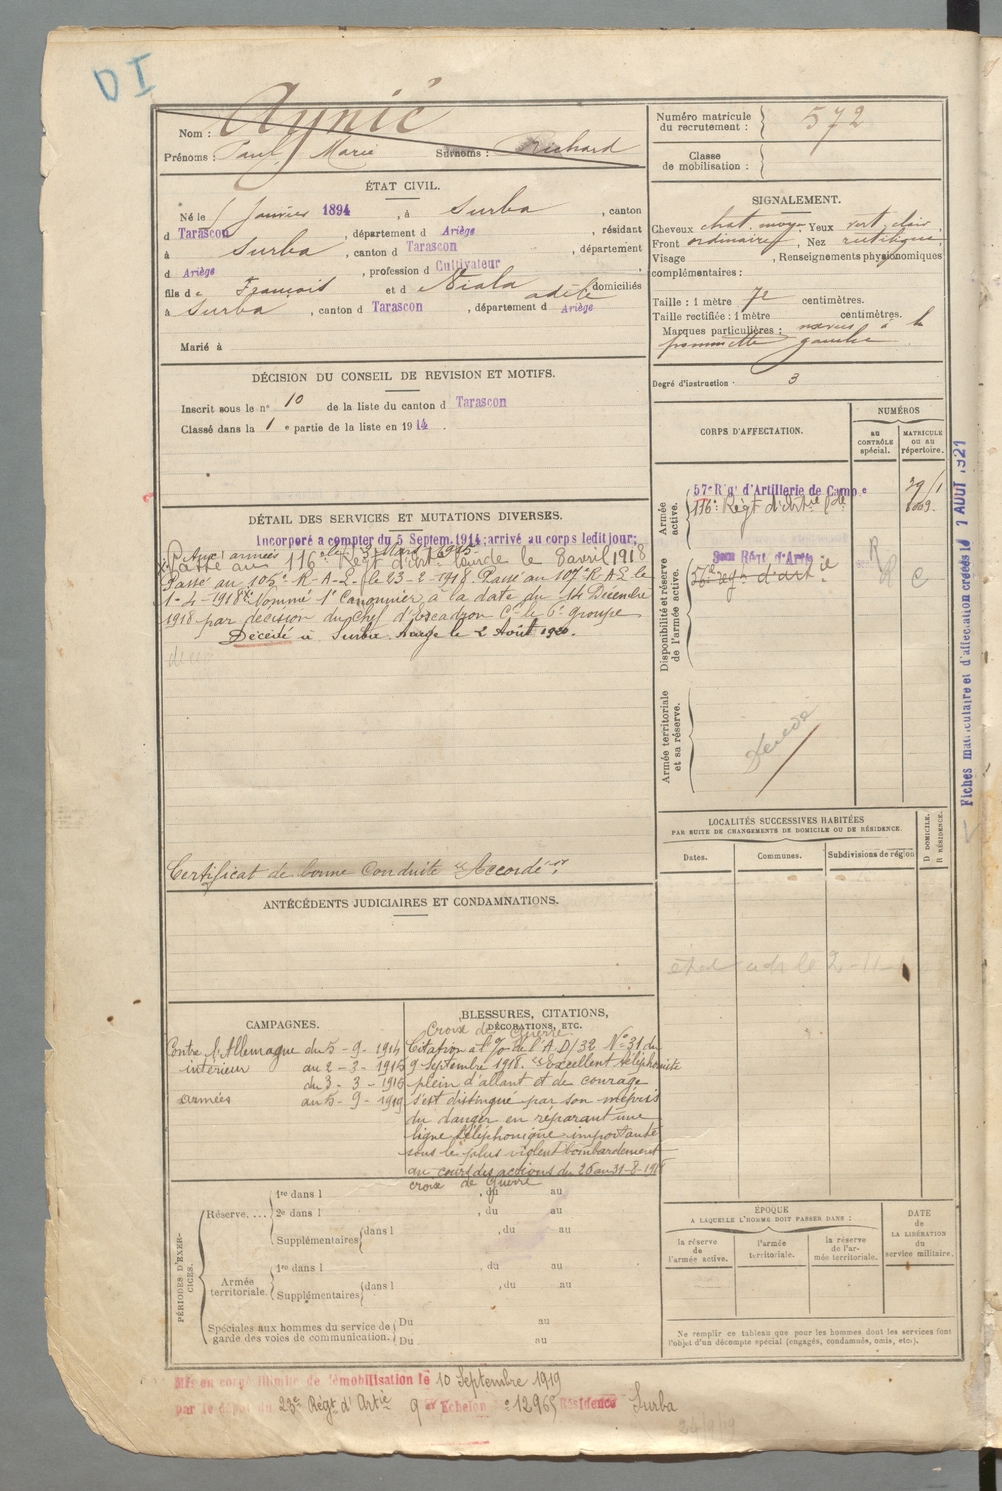 DI
Nom : Aynié
Prénoms : Paul, Marie Surnoms : Richard
Numéro matricule du recrutement : 572
Classe de mobilisation :
ÉTAT CIVIL.
Né le Janvier 1894, à Surba, canton
d Tarascon, département d Ariège, résidant
à Surba, canton d Tarascon, département
d Ariège, profession d Cultivateur,
fils de François et d Niala adèle domiciliés
à Surba, canton d Tarascon, département d Ariège
Marié à
SIGNALEMENT.
Cheveux chat. moyen, Yeux vert clair,
Front ordinaire, Nez rectiligne
Visage , Renseignements physionomiques
complémentaires :
Taille : 1 mètre 72 centimètres.
Taille rectifiée : 1 mètre centimètres.
Marques particulières : nævus à la
pommette gauche
Degré d'instruction 3
DÉCISION DU CONSEIL DE REVISION ET MOTIFS.
Inscrit sous le n° 10 de la liste du canton d Tarascon
Classé dans la 1 e partie de la liste en 1914.
DÉTAIL DES SERVICES ET MUTATIONS DIVERSES.
Incorporé a compter du 5 Septem. 1914; arrivé au corps ledit jour;
Aux armées le 3 Mars 1915
Passé au 116e Régt d'art. lourde le 8 avril 1918
Passé au 105e R-A-L- le 23-2-1918 Passé au 107e R A L le
1-4-1918. Nommé 1e Canonnier à la date du 14 Décembre
1918 par décision du Chef d'Escadron Ct le 6e groupe
Décédé à Surba Ariège le 2 Août 1920.
Certificat de bonne conduite "Accordé".
CORPS D'AFFECTATION.
NUMÉROS
AU CONTRÔLE spécial.
MATRICULE ou au répertoire.
Armée active.
57e Rgt d'Artillerie de Campe
116e Régt d'artie lde
Disponibilité et réserve de l'armée active.
57e régt d'artie
R C
Armée territoriale et sa réserve.
Fiches matriculaire et d'affectation créées le 1 AOUT 1921
LOCALITÉS SUCCESSIVES HABITÉES
PAR SUITE DE CHANGEMENTS DE DOMICILE OU DE RÉSIDENCE.
Dates. Communes. Subdivisions de région
D DOMICILE. R RÉSIDENCE.
ANTÉCÉDENTS JUDICIAIRES ET CONDAMNATIONS.
CAMPAGNES.
Contre l'Allemagne du 5-9-1914
intérieur au 2-3-1915
du 3-3-1915
armées au 5-9-1919
BLESSURES, CITATIONS, DÉCORATIONS, ETC.
Croix de Guerre
Citation à l'o/ de l'A.D/32 No 31 du
9 septembre 1918. "Excellent téléphoniste
plein d'allant et de courage
s'est distingué par son mépris
du danger en réparant une
ligne téléphonique importante
sous le plus violent bombardement
au cours des actions du 20 au 31-8-1918
croix de Guerre
PÉRIODES D'EXERCICES.
Réserve.... 1re dans l , du au
2e dans l , du au
Supplémentaires dans l , du au
Armée territoriale. 1re dans l , du au
Supplémentaires dans l , du au
Spéciales aux hommes du service de garde des voies de communication. Du au
Du au
ÉPOQUE
A LAQUELLE L'HOMME DOIT PASSER DANS :
la réserve de l'armée active.
l'armée territoriale.
la réserve de l'armée territoriale.
DATE de LA LIBÉRATION du service militaire.
Ne remplir ce tableau que pour les hommes dont les services font
l'objet d'un décompte spécial (engagés, condamnés, omis, etc.).
Mis en congé illimité de démobilisation le 10 Septembre 1919
par le dépôt du 23e Régt d'Artie 9e Echelon n° 12965 Résidence Surba